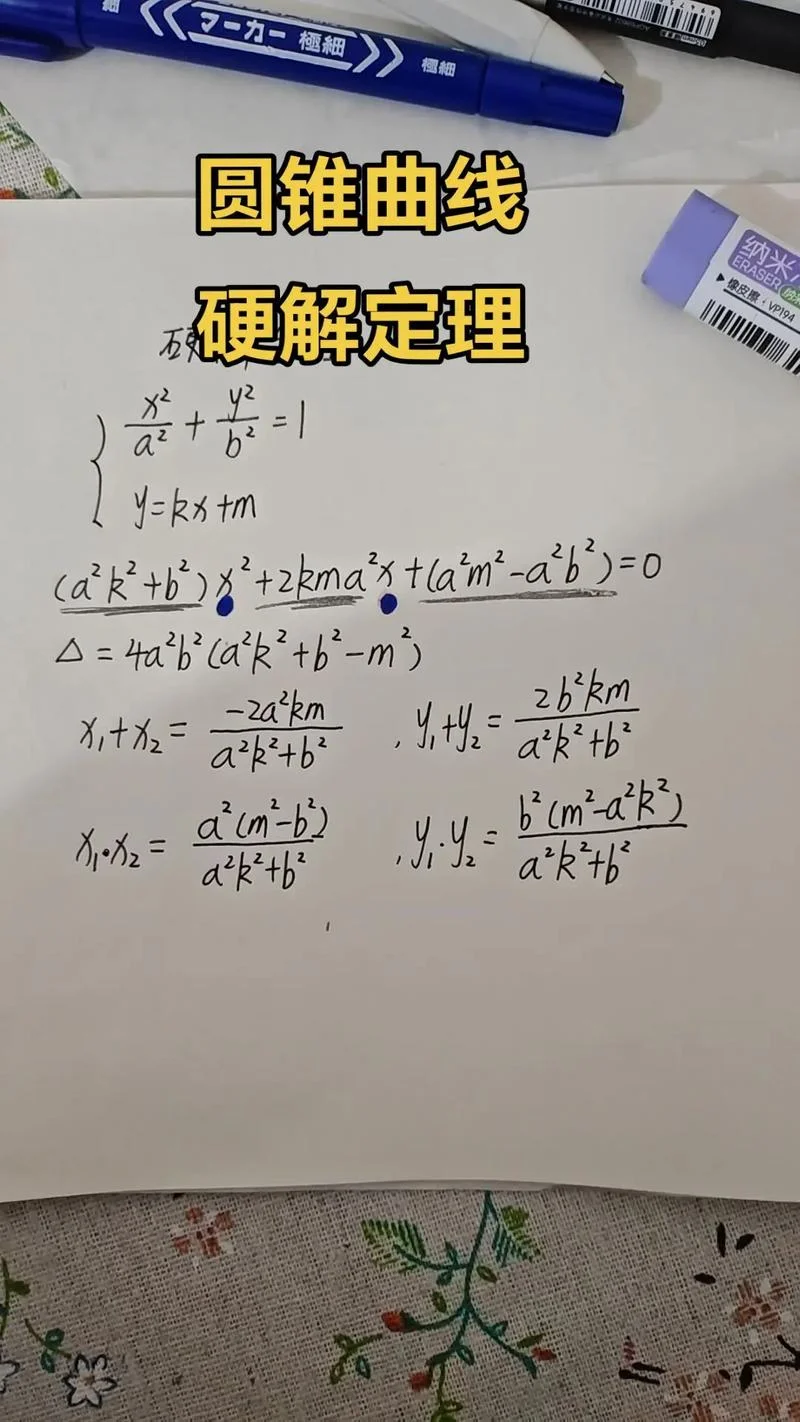 細
マーカー 極細
極細
圆锥曲线
纳米
ERASER
橡皮擦:VP194
硬解定理
x²/a² + y²/b² = 1
y=kx+m
(a²k²+b²)x²+2kma²x+(a²m²-a²b²)=0
△=4a²b²(a²k²+b²-m²)
x₁+x₂= -2a²km/a²k²+b² , y₁+y₂= 2b²km/a²k²+b²
x₁·x₂= a²(m²-b²)/a²k²+b² , y₁·y₂= b²(m²-a²k²)/a²k²+b²